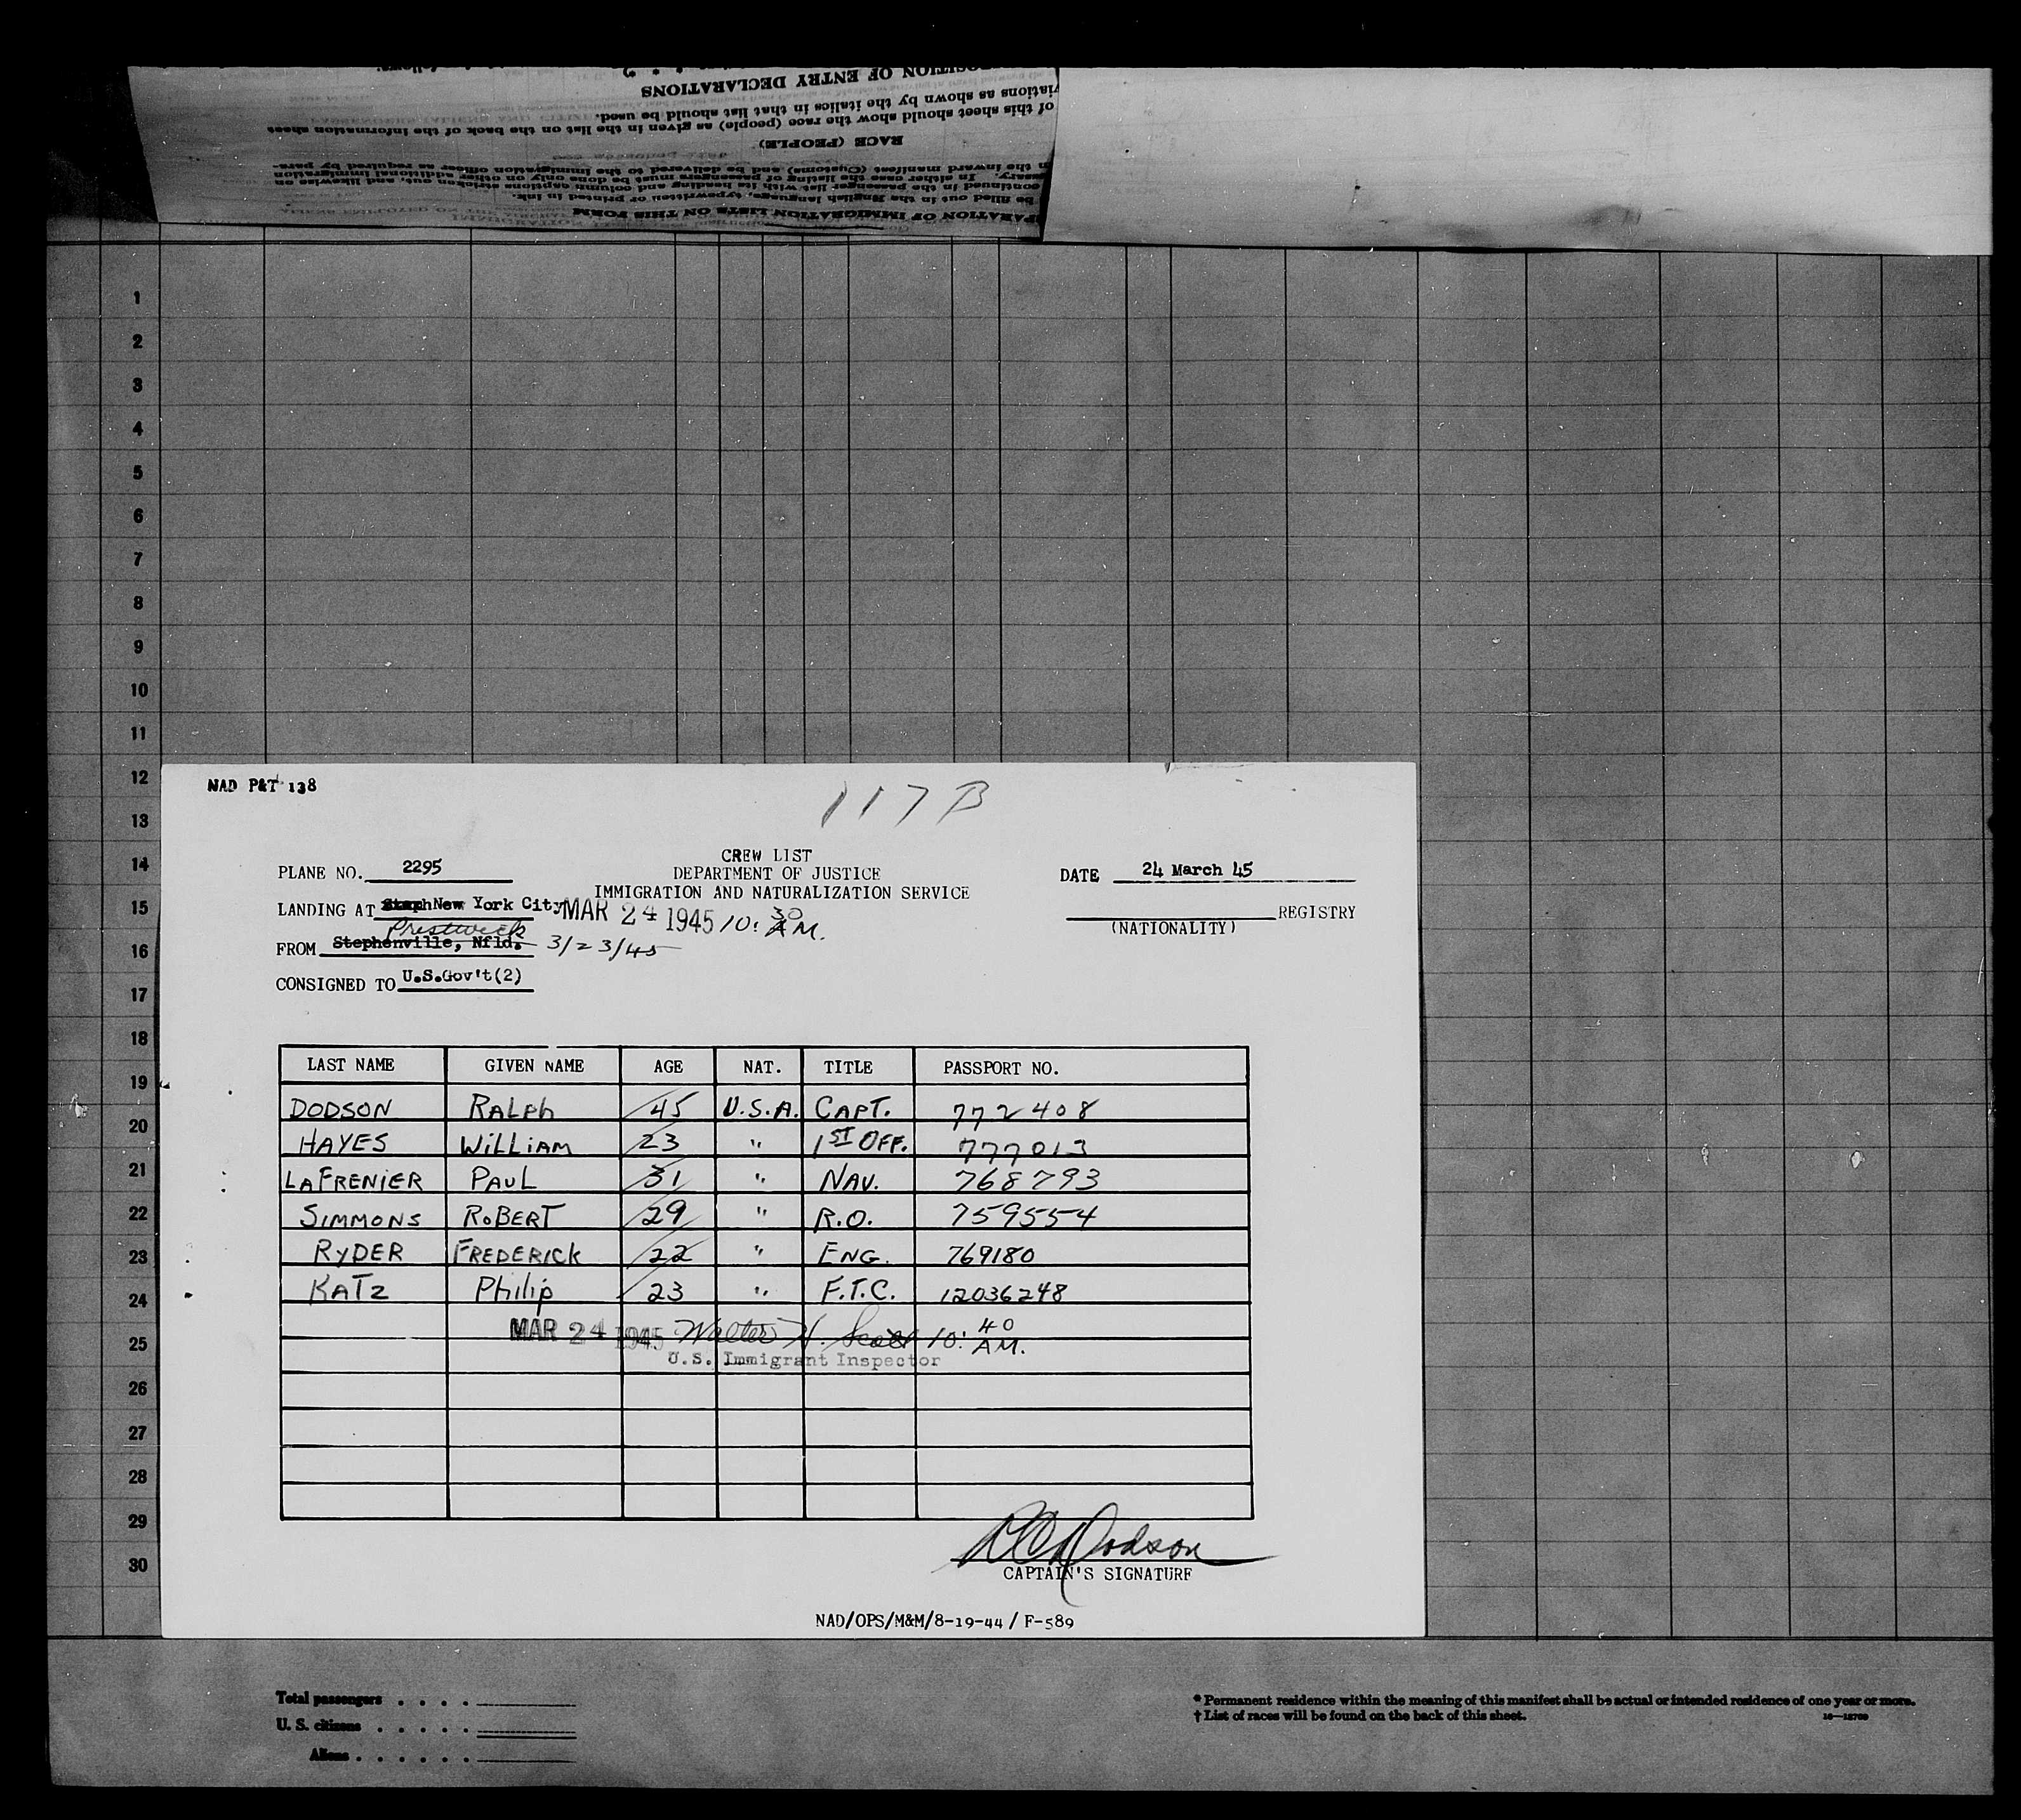 POSITION OF ENTRY DECLARATIONS
of this sheet should show the race (people) as given in the list on the back of the information sheet
iations as shown by the italics in that list should be used.
RACE (PEOPLE)
be filled out in the English language, typewritten or printed in ink.
continued in the passenger list with its heading and column captions stricken out, and likewise on
In either case the listing of passengers must be done only on other additional immigration
n the inward manifest (Customs) and be delivered to the immigration officer as required by para-
PARATION OF IMMIGRATION LISTS ON THIS FORM
1
2
3
4
5
6
7
8
9
10
11
12
13
14
15
16
17
18
19
20
21
22
23
24
25
26
27
28
29
30
NAD P&T 138
117 B
CREW LIST
DEPARTMENT OF JUSTICE
IMMIGRATION AND NATURALIZATION SERVICE
PLANE NO. 2295
DATE 24 March 45
LANDING AT Steph New York City MAR 24 1945 10:30 A.M.
REGISTRY
(NATIONALITY)
Prestwick
FROM Stephenville, Nfld. 3/23/45
CONSIGNED TO U.S.Gov't(2)
LAST NAME GIVEN NAME AGE NAT. TITLE PASSPORT NO.
DODSON RALph 45 U.S.A. CAPT. 772408
HAYES WiLLiAM 23 " 1ST OFF. 777013
LAFRENiER PAUL 31 " NAV. 768793
SIMMONS RoBERT 29 " R.O. 759554
RyDER FREDERICK 22 " ENG. 769180
KATZ Philip 23 " F.T.C. 12036248
MAR 24 1945 Walter H. Scott 10:40 AM.
U.S. Immigrant Inspector
R C Dodson
CAPTAIN'S SIGNATURE
NAD/OPS/M&M/8-19-44 / F-589
Total passengers . . . .
U. S. citizens . . . . .
Aliens . . . . . .
* Permanent residence within the meaning of this manifest shall be actual or intended residence of one year or more.
† List of races will be found on the back of this sheet.